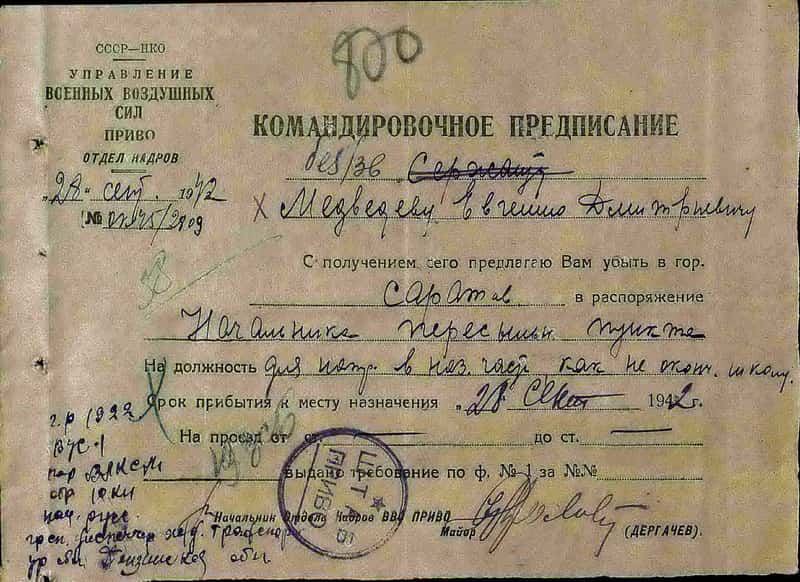 800
СССР—НКО
УПРАВЛЕНИЕ
ВОЕННЫХ ВОЗДУШНЫХ
СИЛ
ПРИВО
ОТДЕЛ КАДРОВ
"28" сент. 1942
№
КОМАНДИРОВОЧНОЕ ПРЕДПИСАНИЕ
без/зв Сержанту
Медведеву Евгению Дмитриевичу
С получением сего предлагаю Вам убыть в гор.
Саратов в распоряжение
Начальника пересыльн пункта
На должность для напр в наз. част как не оконч. школу.
Срок прибытия к месту назначения "28" Сент 1942 г.
На проезд от ст. до ст.
выдано требование по ф. № 1 за №№
г.р 1922
ВУС-1
ВЛКСМ
обр 10 кл
ШТАБ
ПРИВО
Начальник Отдела Кадров ВВС ПРИВО
Майор (ДЕРГАЧЕВ).
Пензинской обл